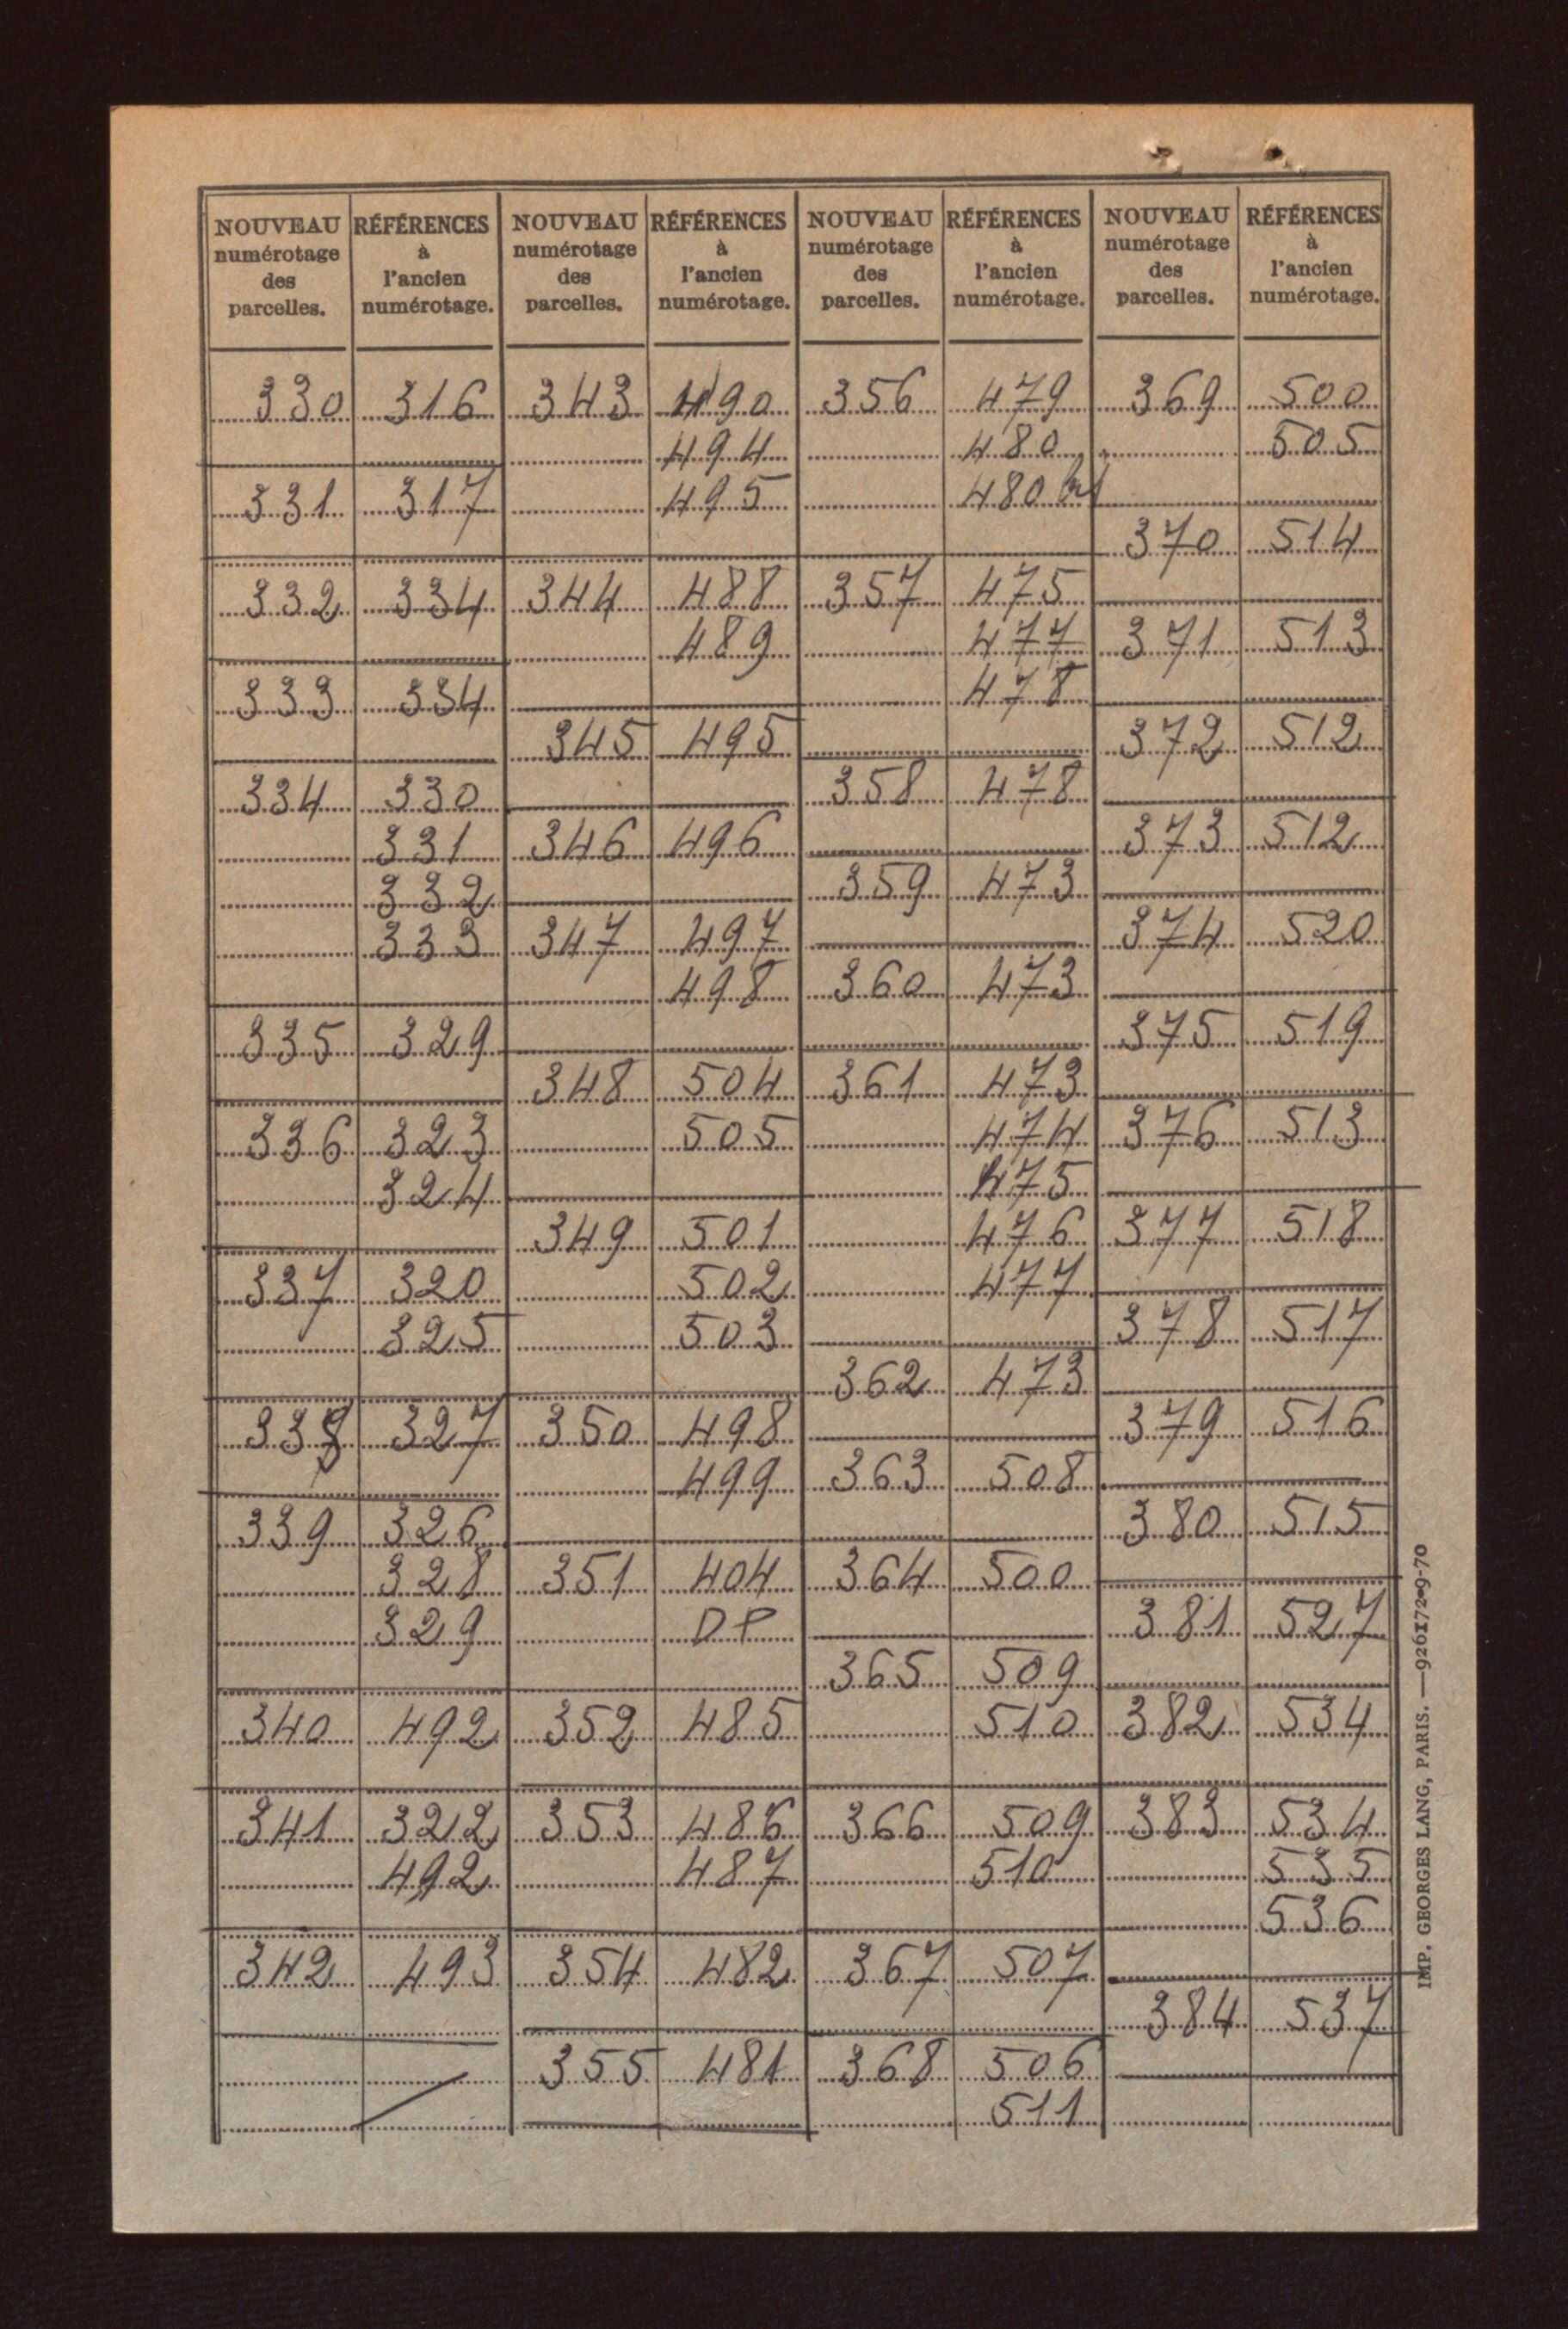 NOUVEAU numérotage des parcelles. | RÉFÉRENCES à l'ancien numérotage.
330 316
331 317
332 334
333 334
334 330
331
332
333
335 329
336 323
324
337 320
325
338 327
339 326
328
329
340 492
341 322
492
342 493
NOUVEAU numérotage des parcelles. | RÉFÉRENCES à l'ancien numérotage.
343 490
494
495
344 488
489
345 495
346 496
347 497
498
348 504
505
349 501
502
503
350 498
499
351 404
DP
352 485
353 486
487
354 482
355 481
NOUVEAU numérotage des parcelles. | RÉFÉRENCES à l'ancien numérotage.
356 479
480
480
357 475
477
478
358 478
359 473
360 473
361 473
474
475
476
477
362 473
363 508
364 500
365 509
510
366 509
510
367 507
368 506
511
NOUVEAU numérotage des parcelles. | RÉFÉRENCES à l'ancien numérotage.
369 500
505
370 514
371 513
372 512
373 512
374 520
375 519
376 513
377 518
378 517
379 516
380 515
381 527
382 534
383 534
535
536
384 537
IMP. GEORGES LANG, PARIS. — 926172-9-70